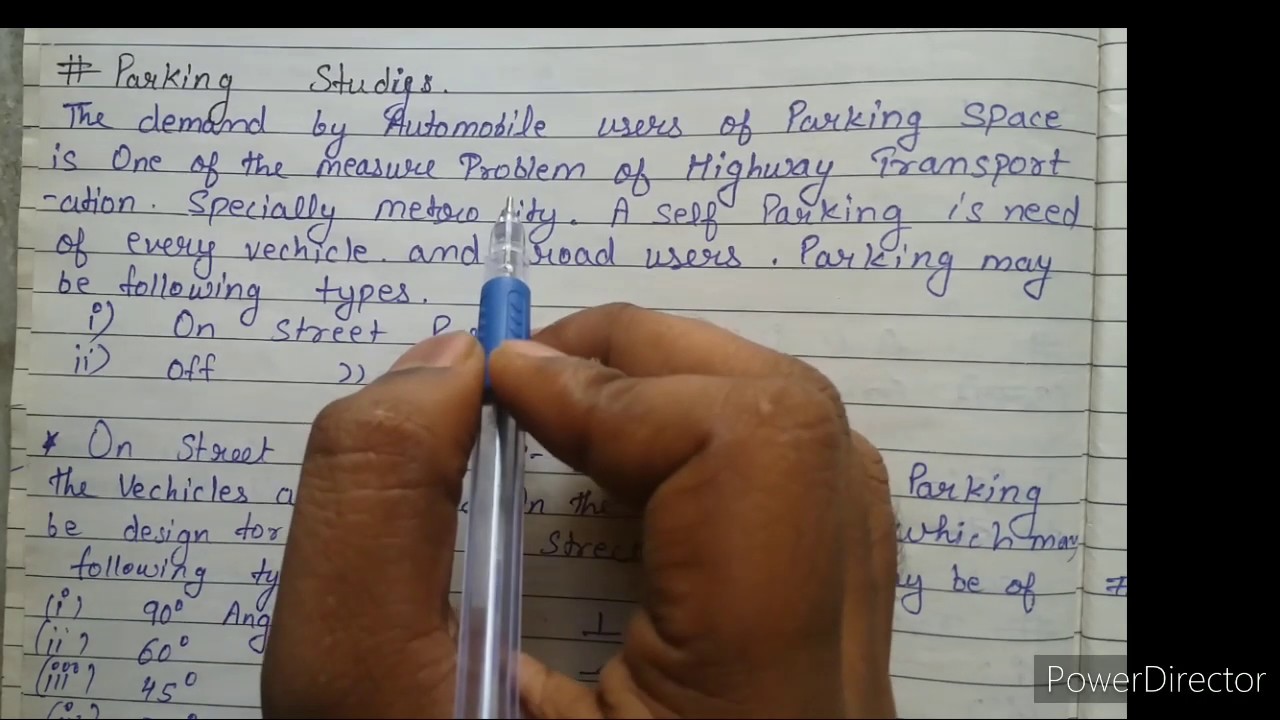 # Parking Studies.
The demand by Automobile users of Parking Space
is One of the measure Problem of Highway Transport
-ation. Specially metro ity. A self Parking is need
of every vechicle. and road users. Parking may
be following types.
i) On Street
ii) Off ))
* On Street :-
the Vechicles On the Parking
be design for Street which may
following be of
(i) 90° Ang
(ii) 60°
(iii) 45°
PowerDirector